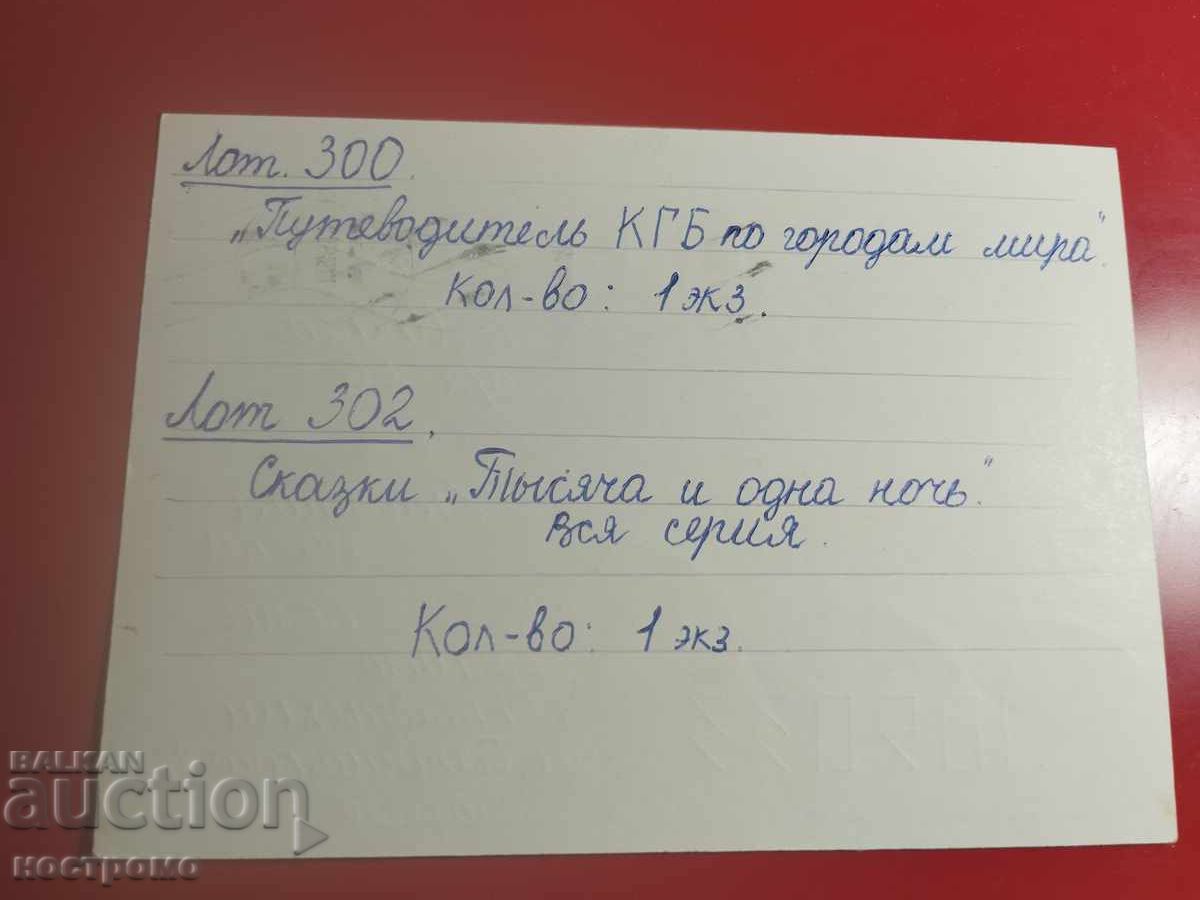 Лот. 300.
„Путеводитель КГБ по городам мира".
Кол-во: 1 экз.
Лот 302.
Сказки „Тысяча и одна ночь".
вся серия.
Кол-во: 1 экз.
BALKAN
auction
ностромо